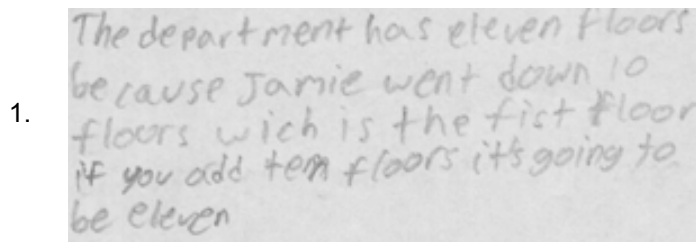 1.
The department has eleven floors
because Jamie went down 10
floors wich is the fist floor
if you add ten floors it's going to
be eleven